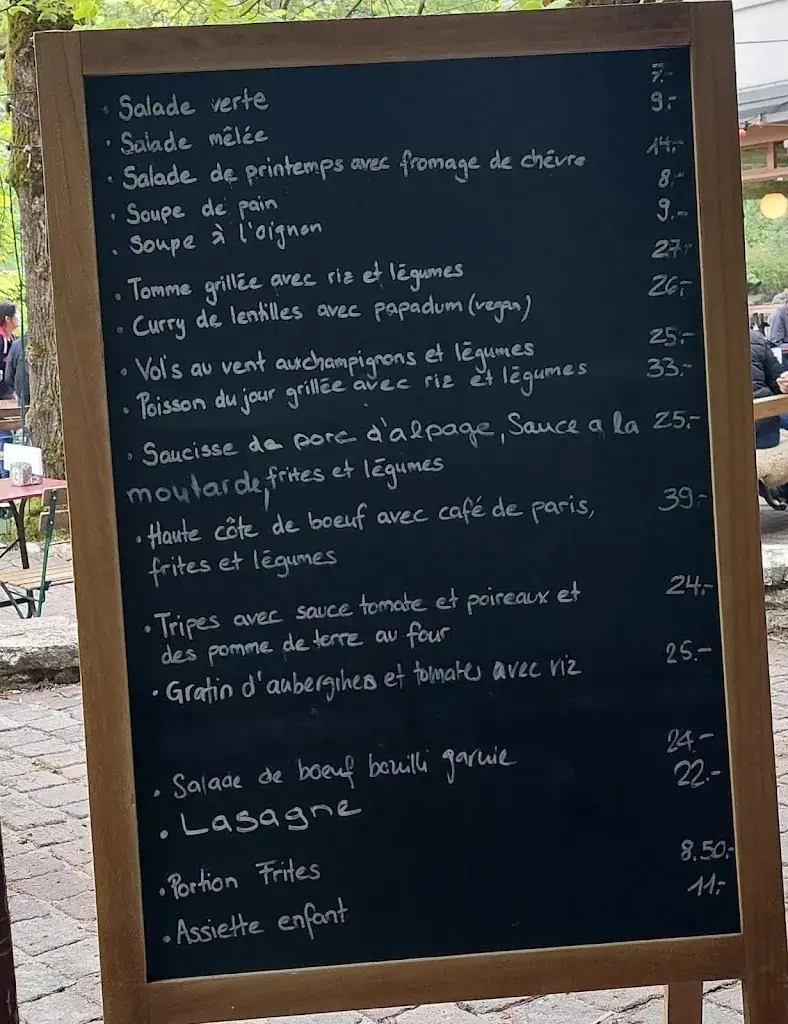 · Salade verte 7.-
· Salade mêlée 9.-
· Salade de printemps avec fromage de chêvre 14.-
· Soupe de pain 8.-
· Soupe à l'oignon 9.-
· Tomme grillée avec riz et légumes 27.-
· Curry de lentilles avec papadum (vegan) 26.-
· Vol's au vent auxchampignons et légumes 25.-
· Poisson du jour grillée avec riz et légumes 33.-
· Saucisse de porc d'alpage, Sauce a la 25.-
moutarde, frites et légumes
· Haute côte de boeuf avec café de paris, 39.-
frites et légumes
· Tripes avec sauce tomate et poireaux et 24.-
des pomme de terre au four
· Gratin d'aubergines et tomates avec riz 25.-
· Salade de boeuf bouilli garnie 24.-
· Lasagne 22.-
· Portion Frites 8.50.-
· Assiette enfant 11.-